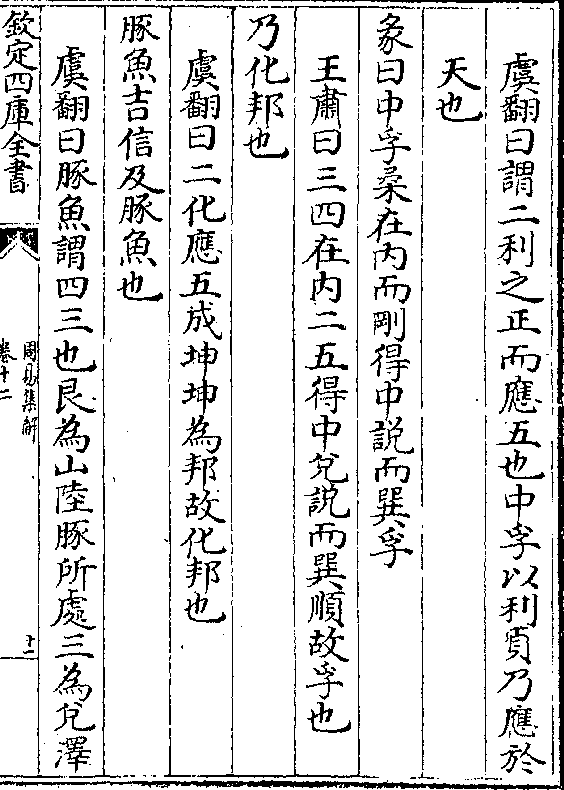 虞翻曰謂二利之正而應五也中孚以利貞乃應於
天也
彖曰中孚柔在内而剛得中說而巽孚
王肅曰三四在内二五得中兌說而巽順故孚也
乃化邦也
虞翻曰二化應五成坤坤為邦故化邦也
豚魚吉信及豚魚也
虞翻曰豚魚謂四三也艮為山陸豚所處三為兌澤
欽定四庫全書
周易集解
卷十二
十一